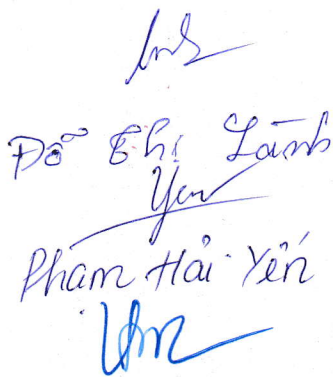 Đỗ Thị Lành
Yến
Phạm Hải Yến